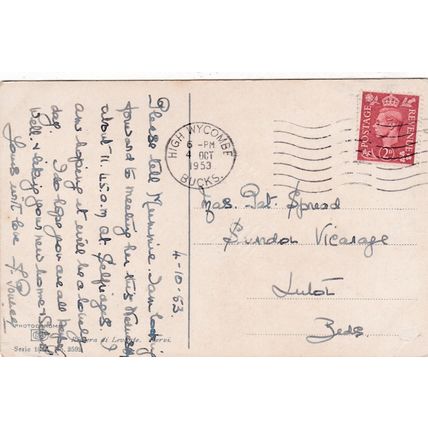 4-10-53
Please tell Mummie I am looking
forward to meeting her this Wednesday
about 11.45 a.m at Selfridges. I
am hoping it will be a lovely
day. I do hope you are all keeping
well & enjoying your new home &
Yours with love
HIGH WYCOMBE
6 - PM
4 OCT
1953
BUCKS.
POSTAGE
REVENUE
Mrs. Pat. Spread
Sundon Vicarage
Luton
Beds
PHOTOCHROM
Riviera di Levante. Nervi.
Serie